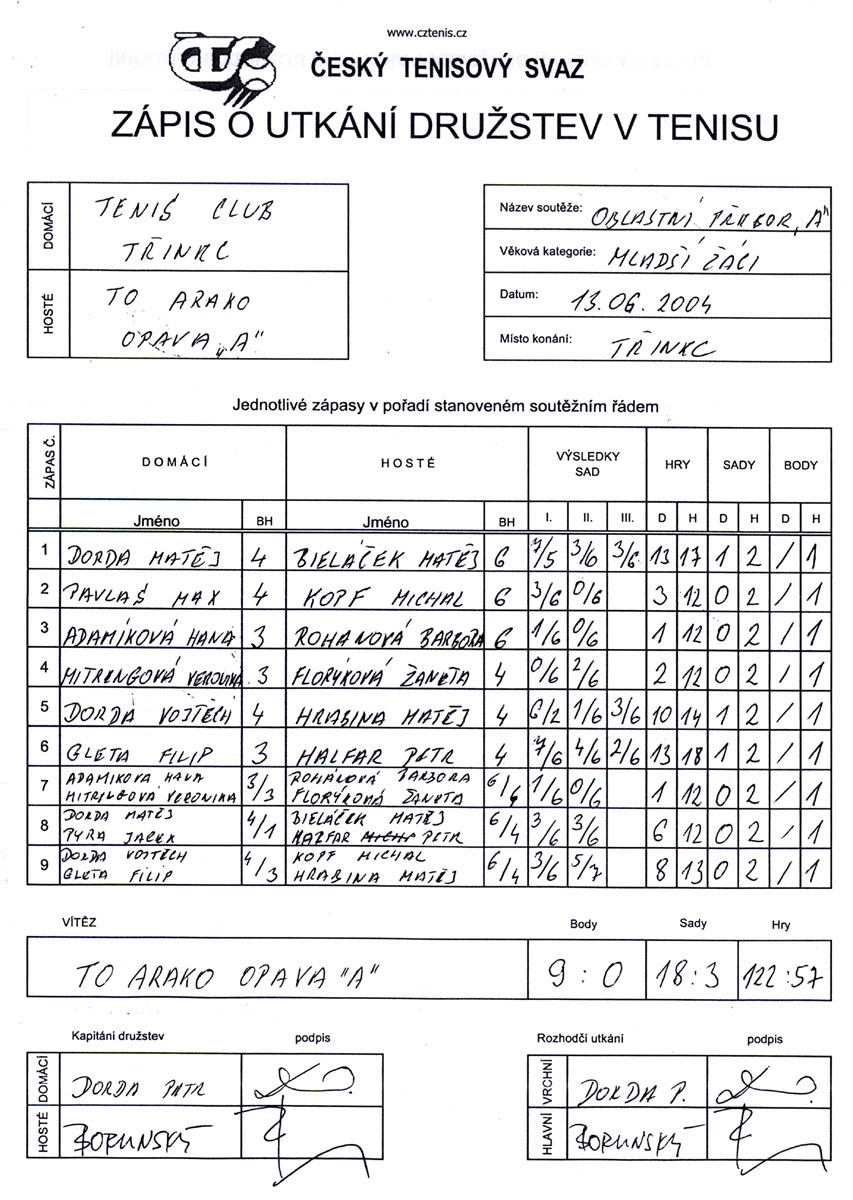 www.cztenis.cz
ČTS
ČESKÝ TENISOVÝ SVAZ
ZÁPIS O UTKÁNÍ DRUŽSTEV V TENISU
DOMÁCÍ TENIS CLUB
TŘINEC
HOSTÉ TO ARAKO
OPAVA „A"
Název soutěže: OBLASTNÍ PŘEBOR „A"
Věková kategorie: MLADŠÍ ŽÁCI
Datum: 13.06.2004
Místo konání: TŘINEC
Jednotlivé zápasy v pořadí stanoveném soutěžním řádem
ZÁPAS Č. DOMÁCÍ HOSTÉ VÝSLEDKY SAD HRY SADY BODY
Jméno BH Jméno BH I. II. III. D H D H D H
1 DORDA MATĚJ 4 BIELÁČEK MATĚJ 6 7/5 3/6 3/6 13 17 1 2 / 1
2 PAVLAS MAX 4 KOPF MICHAL 6 3/6 0/6 3 12 0 2 / 1
3 ADAMÍKOVÁ HANA 3 ROHANOVÁ BARBORA 6 1/6 0/6 1 12 0 2 / 1
4 MITRENGOVÁ VERONIKA 3 FLORÝKOVÁ ŽANETA 4 0/6 2/6 2 12 0 2 / 1
5 DORDA VOJTĚCH 4 HRABINA MATĚJ 4 6/2 1/6 3/6 10 14 1 2 / 1
6 GLETA FILIP 3 HALFAR PETR 4 7/6 4/6 2/6 13 18 1 2 / 1
7 ADAMIKOVA HANA 3/3 ROHANOVÁ BARBORA 6/4 1/6 0/6 1 12 0 2 / 1
MITRENGOVÁ VERONIKA FLORÝKOVÁ ŽANETA
8 DORDA MATĚJ 4/1 BIELÁČEK MATĚJ 6/4 3/6 3/6 6 12 0 2 / 1
PYRA JACEK HALFAR PETR
9 DORDA VOJTĚCH 4/3 KOPF MICHAL 6/4 3/6 5/7 8 13 0 2 / 1
GLETA FILIP HRABINA MATĚJ
VÍTĚZ Body Sady Hry
TO ARAKO OPAVA "A" 9:0 18:3 122:57
Kapitáni družstev podpis Rozhodčí utkání podpis
DOMÁCÍ DORDA PETR VRCHNÍ DORDA P.
HOSTÉ BORUNSKÝ HLAVNÍ BORUNSKÝ